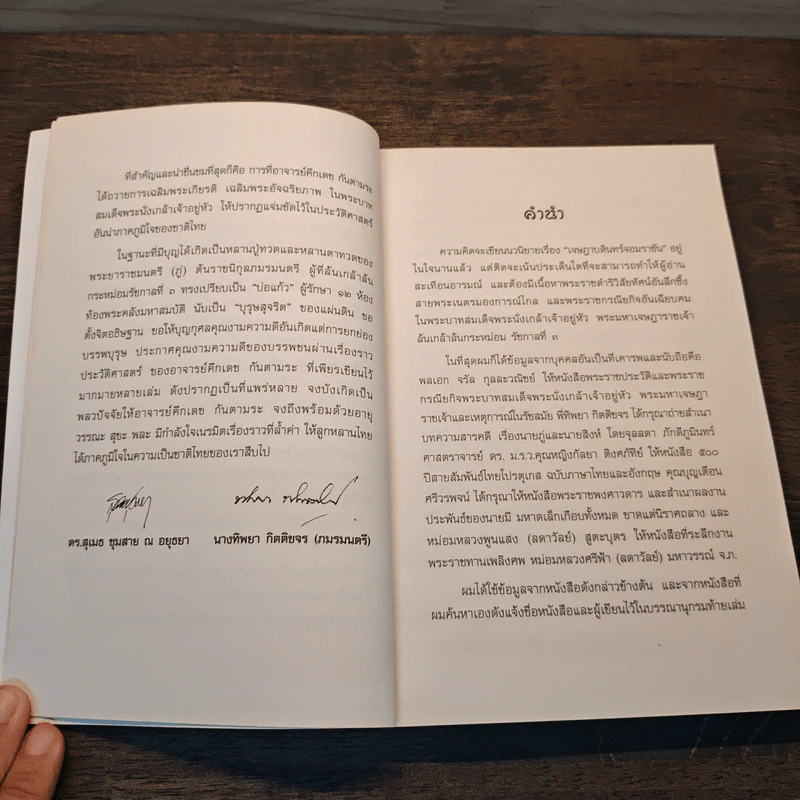 ที่สำคัญและน่าชื่นชมที่สุดก็คือ การที่อาจารย์คึกเดช กันตามระ
ได้ถวายการเฉลิมพระเกียรติ เฉลิมพระอัจฉริยภาพ ในพระบาท
สมเด็จพระนั่งเกล้าเจ้าอยู่หัว ให้ปรากฏแจ่มชัดไว้ในประวัติศาสตร์
อันน่าภาคภูมิใจของชาติไทย
ในฐานะที่มีบุญได้เกิดเป็นหลานปู่ทวดและหลานตาทวดของ
พระยาราชมนตรี (ภู่) ต้นราชนิกุลภมรมนตรี ผู้ที่ล้นเกล้าล้น
กระหม่อมรัชกาลที่ ๓ ทรงเปรียบเป็น “บ่อแก้ว” ผู้รักษา ๑๒ ห้อง
ท้องพระคลังมหาสมบัติ นับเป็น “บุรุษสุจริต” ของแผ่นดิน ขอ
ตั้งจิตอธิษฐาน ขอให้บุญกุศลคุณงามความดีอันเกิดแต่การยกย่อง
บรรพบุรุษ ประกาศคุณงามความดีของบรรพชนผ่านเรื่องราว
ประวัติศาสตร์ ของอาจารย์คึกเดช กันตามระ ที่เพียรเขียนไว้
มากมายหลายเล่ม ดังปรากฏเป็นที่แพร่หลาย จงบังเกิดเป็น
พลวปัจจัยให้อาจารย์คึกเดช กันตามระ จงถึงพร้อมด้วยอายุ
วรรณะ สุขะ พละ มีกำลังใจเนรมิตเรื่องราวที่ล้ำค่า ให้ลูกหลานไทย
ได้ภาคภูมิใจในความเป็นชาติไทยของเราสืบไป
ดร.สุเมธ ชุมสาย ณ อยุธยา นางทิพยา กิตติขจร (ภมรมนตรี)
คำนำ
ความคิดจะเขียนนวนิยายเรื่อง “เจษฎาบดินทร์จอมราชัน” อยู่
ในใจนานแล้ว แต่ติดจะเน้นประเด็นใดที่จะสามารถทำให้ผู้อ่าน
สะเทือนอารมณ์ และต้องมีเนื้อหาพระราชดำริวิสัยทัศน์อันลึกซึ้ง
สายพระเนตรมองการณ์ไกล และพระราชกรณียกิจอันเฉียบคม
ในพระบาทสมเด็จพระนั่งเกล้าเจ้าอยู่หัว พระมหาเจษฎาราชเจ้า
ล้นเกล้าล้นกระหม่อม รัชกาลที่ ๓
ในที่สุดผมก็ได้ข้อมูลจากบุคคลอันเป็นที่เคารพและนับถือคือ
พลเอก จรัล กุลละวณิชย์ ให้หนังสือพระราชประวัติและพระราช
กรณียกิจพระบาทสมเด็จพระนั่งเกล้าเจ้าอยู่หัว พระมหาเจษฎา
ราชเจ้าและเหตุการณ์ในรัชสมัย พี่ทิพยา กิตติขจร ได้กรุณาถ่ายสำเนา
บทความสารคดี เรื่องนายภู่และนายสิงห์ โดยจุลลดา ภักดีภูมินทร์
ศาสตราจารย์ ดร. ม.ร.ว.คุณหญิงกัลยา ติงศภัทิย์ ให้หนังสือ ๕๐๐
ปีสายสัมพันธ์ไทยโปรตุเกส ฉบับภาษาไทยและอังกฤษ คุณบุญเตือน
ศรีวรพจน์ ได้กรุณาให้หนังสือพระราชพงศาวดาร และสำเนาผลงาน
ประพันธ์ของนายมี มหาดเล็กเกือบทั้งหมด ขาดแต่นิราศถลาง และ
หม่อมหลวงพูนแสง (ลดาวัลย์) สูตะบุตร ให้หนังสือที่ระลึกงาน
พระราชทานเพลิงศพ หม่อมหลวงศรีฟ้า (ลดาวัลย์) มหาวรรณ์ จ.ภ.
ผมได้ใช้ข้อมูลจากหนังสือดังกล่าวข้างต้น และจากหนังสือที่
ผมค้นหาเองดังแจ้งชื่อหนังสือและผู้เขียนไว้ในบรรณานุกรมท้ายเล่ม